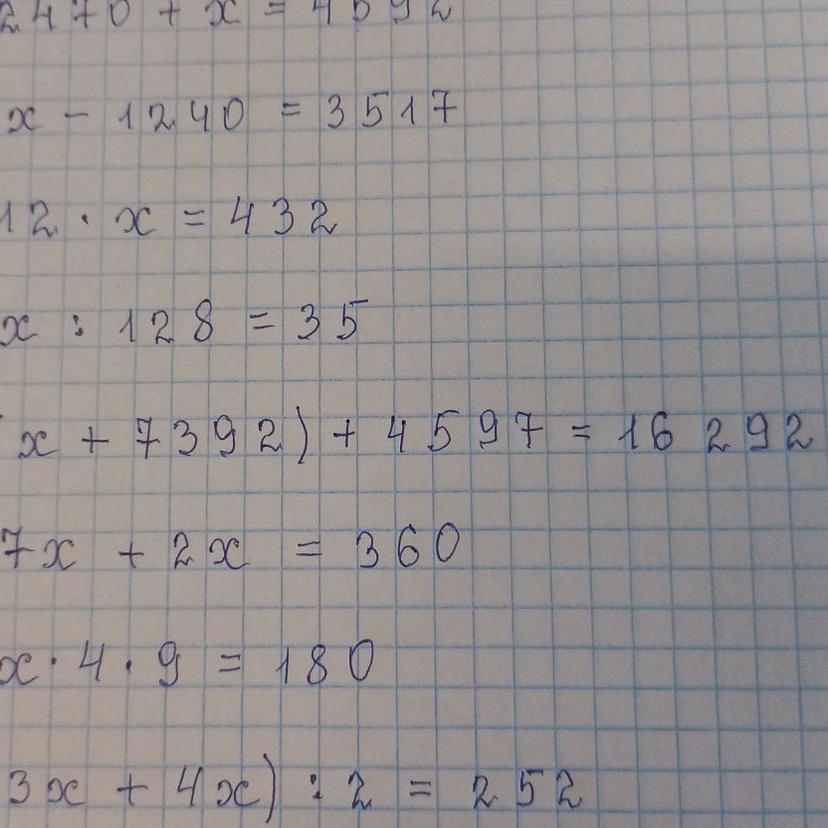 2470 + x = 4592
x - 1240 = 3517
12 · x = 432
x : 128 = 35
(x + 7392) + 4597 = 16 292
7x + 2x = 360
x · 4 · 9 = 180
3x + 4x) : 2 = 252